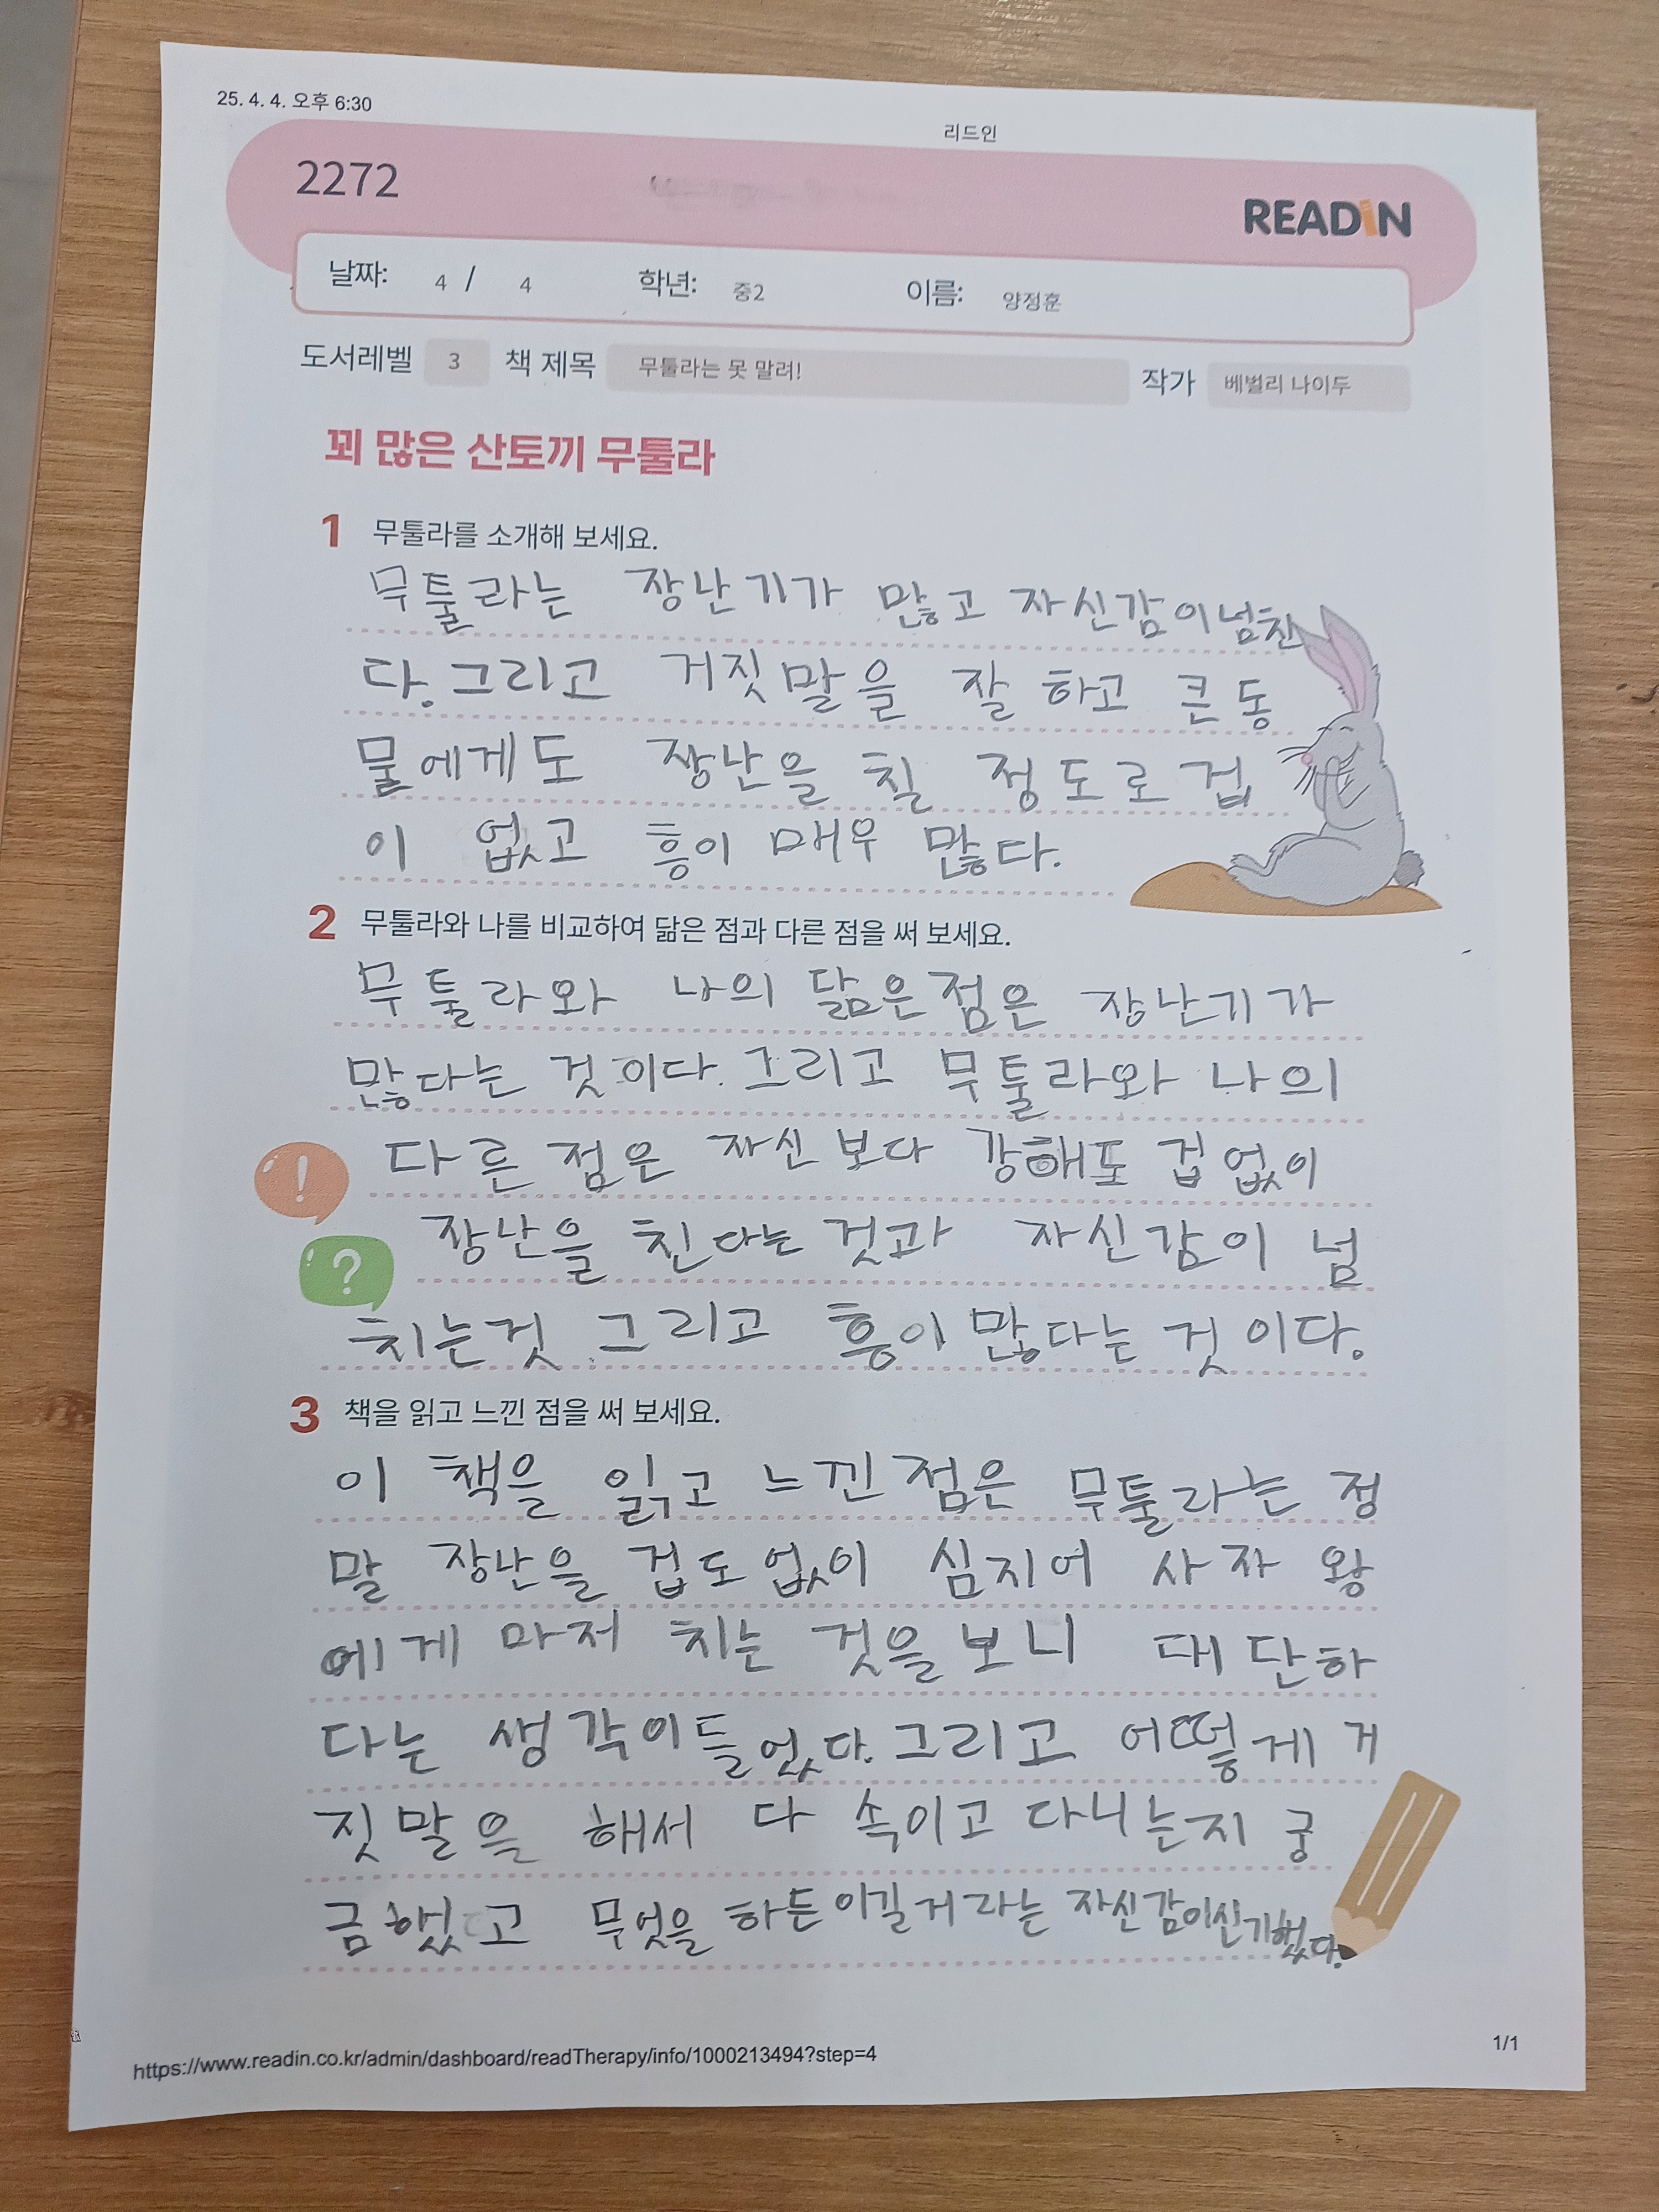 25. 4. 4. 오후 6:30
리드인
2272
READIN
날짜: 4 / 4 학년: 중2 이름: 양정훈
도서레벨 3 책 제목 무툴라는 못 말려! 작가 베벌리 나이두
꾀 많은 산토끼 무툴라
1 무툴라를 소개해 보세요.
무툴라는 장난기가 많고 자신감이넘친
다. 그리고 거짓말을 잘 하고 큰 동
물에게도 장난을 칠 정도로 겁
이 없고 흥이 매우 많다.
2 무툴라와 나를 비교하여 닮은 점과 다른 점을 써 보세요.
무툴라와 나의 닮은점은 장난기가
많다는 것이다. 그리고 무툴라와 나의
! 다른 점은 자신 보다 강해도 겁없이
장난을 친다는 것과 자신감이 넘
?
치는것 그리고 흥이 많다는 것이다.
3 책을 읽고 느낀 점을 써 보세요.
이 책을 읽고 느낀점은 무툴라는 정
말 장난을 겁도없이 심지어 사자 왕
에게 마저 치는 것을보니 대단하
다는 생각이들었다. 그리고 어떻게 거
짓말을 해서 다 속이고 다니는지 궁
금했고 무엇을 하든이길거라는 자신감이신기했다.
https://www.readin.co.kr/admin/dashboard/readTherapy/info/1000213494?step=4
1/1